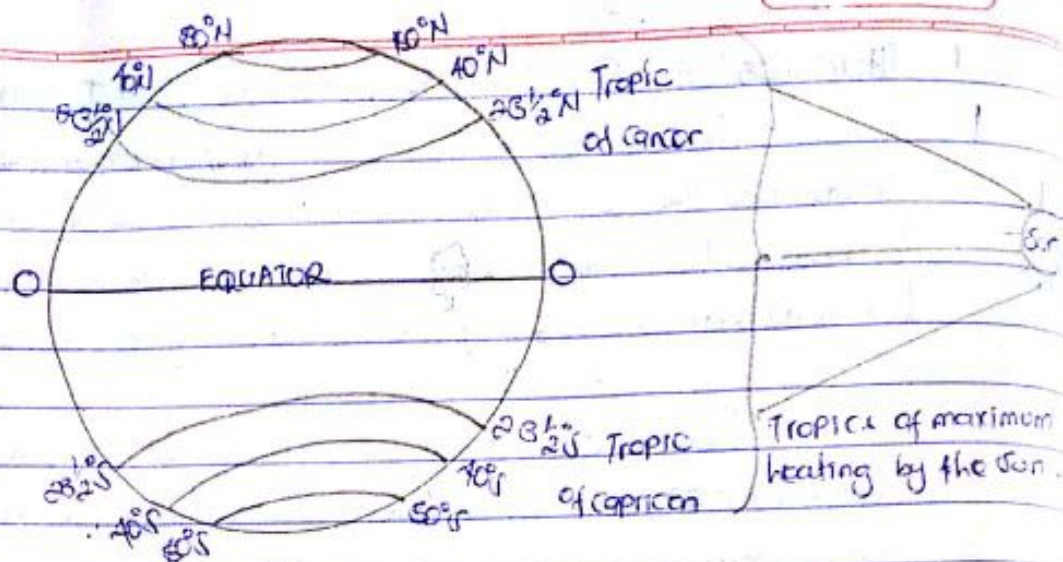 80°N 60°N
40°N 40°N
23½°N Tropic
of cancer
Sun
O EQUATOR O
23½°S 23½°S Tropic
of capricon
40°S 40°S
60°S 60°S
Tropics of maximum
heating by the Sun.